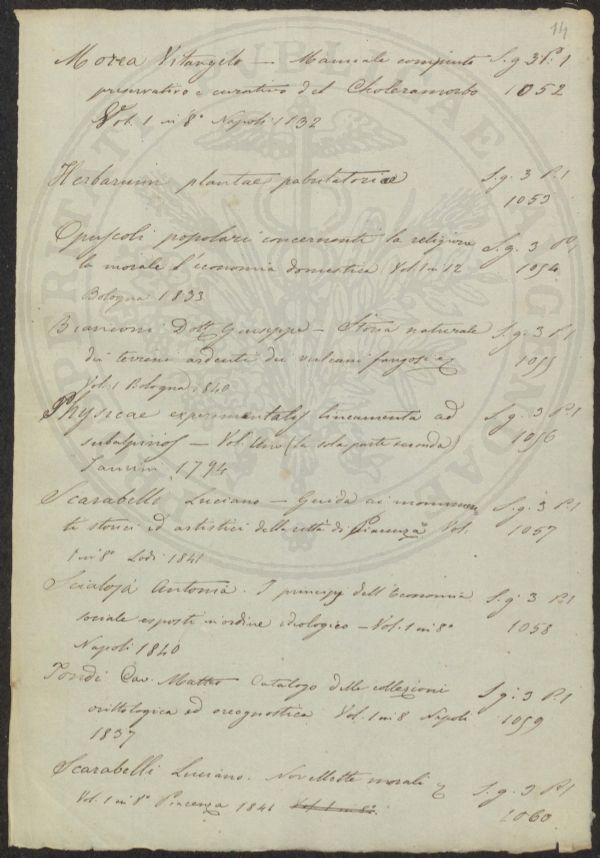 14
Morea Vitangelo — Manuale compiuto S.g. 3 P. 1
preservativo e curativo del Choleramorbo 1052
Vol. 1 in 8° Napoli 1832
Herbarum plantae S.g. 3 P. 1
1053
Opuscoli popolari concernenti la religione S.g. 3 P. 1
la morale l'economia domestica Vol. 1 in 12 1054
Bologna 1833
Bianconi Dott. Giuseppe — Storia naturale S.g. 3 P. 1
dei terreni ardenti dei vulcani fangosi 1055
Vol. 1 Bologna 1840
Physicae experimentalis lineamenta ad S.g. 3 P. 1
subalpinos — Vol. Uno (la sola parte seconda) 1056
1794
Scarabelli Luciano — Guida ai monumen S.g. 3 P. 1
ti storici ed artistici della città di Piacenza Vol. 1057
1 in 8° Lodi 1841
Scialoja Antonio. I principj dell'Economia S.g. 3 P. 1
sociale esposti in ordine ideologico — Vol. 1 in 8° 1058
Napoli 1840
Tondi Cav. Matteo Catalogo delle collezioni S.g. 3 P. 1
orittologica ed oreognostica Vol. 1 in 8 Napoli 1059
1837
Scarabelli Luciano. Novellette morali S.g. 3 P. 1
Vol. 1 in 8° Piacenza 1841 Vol. 1 in 8° 1060